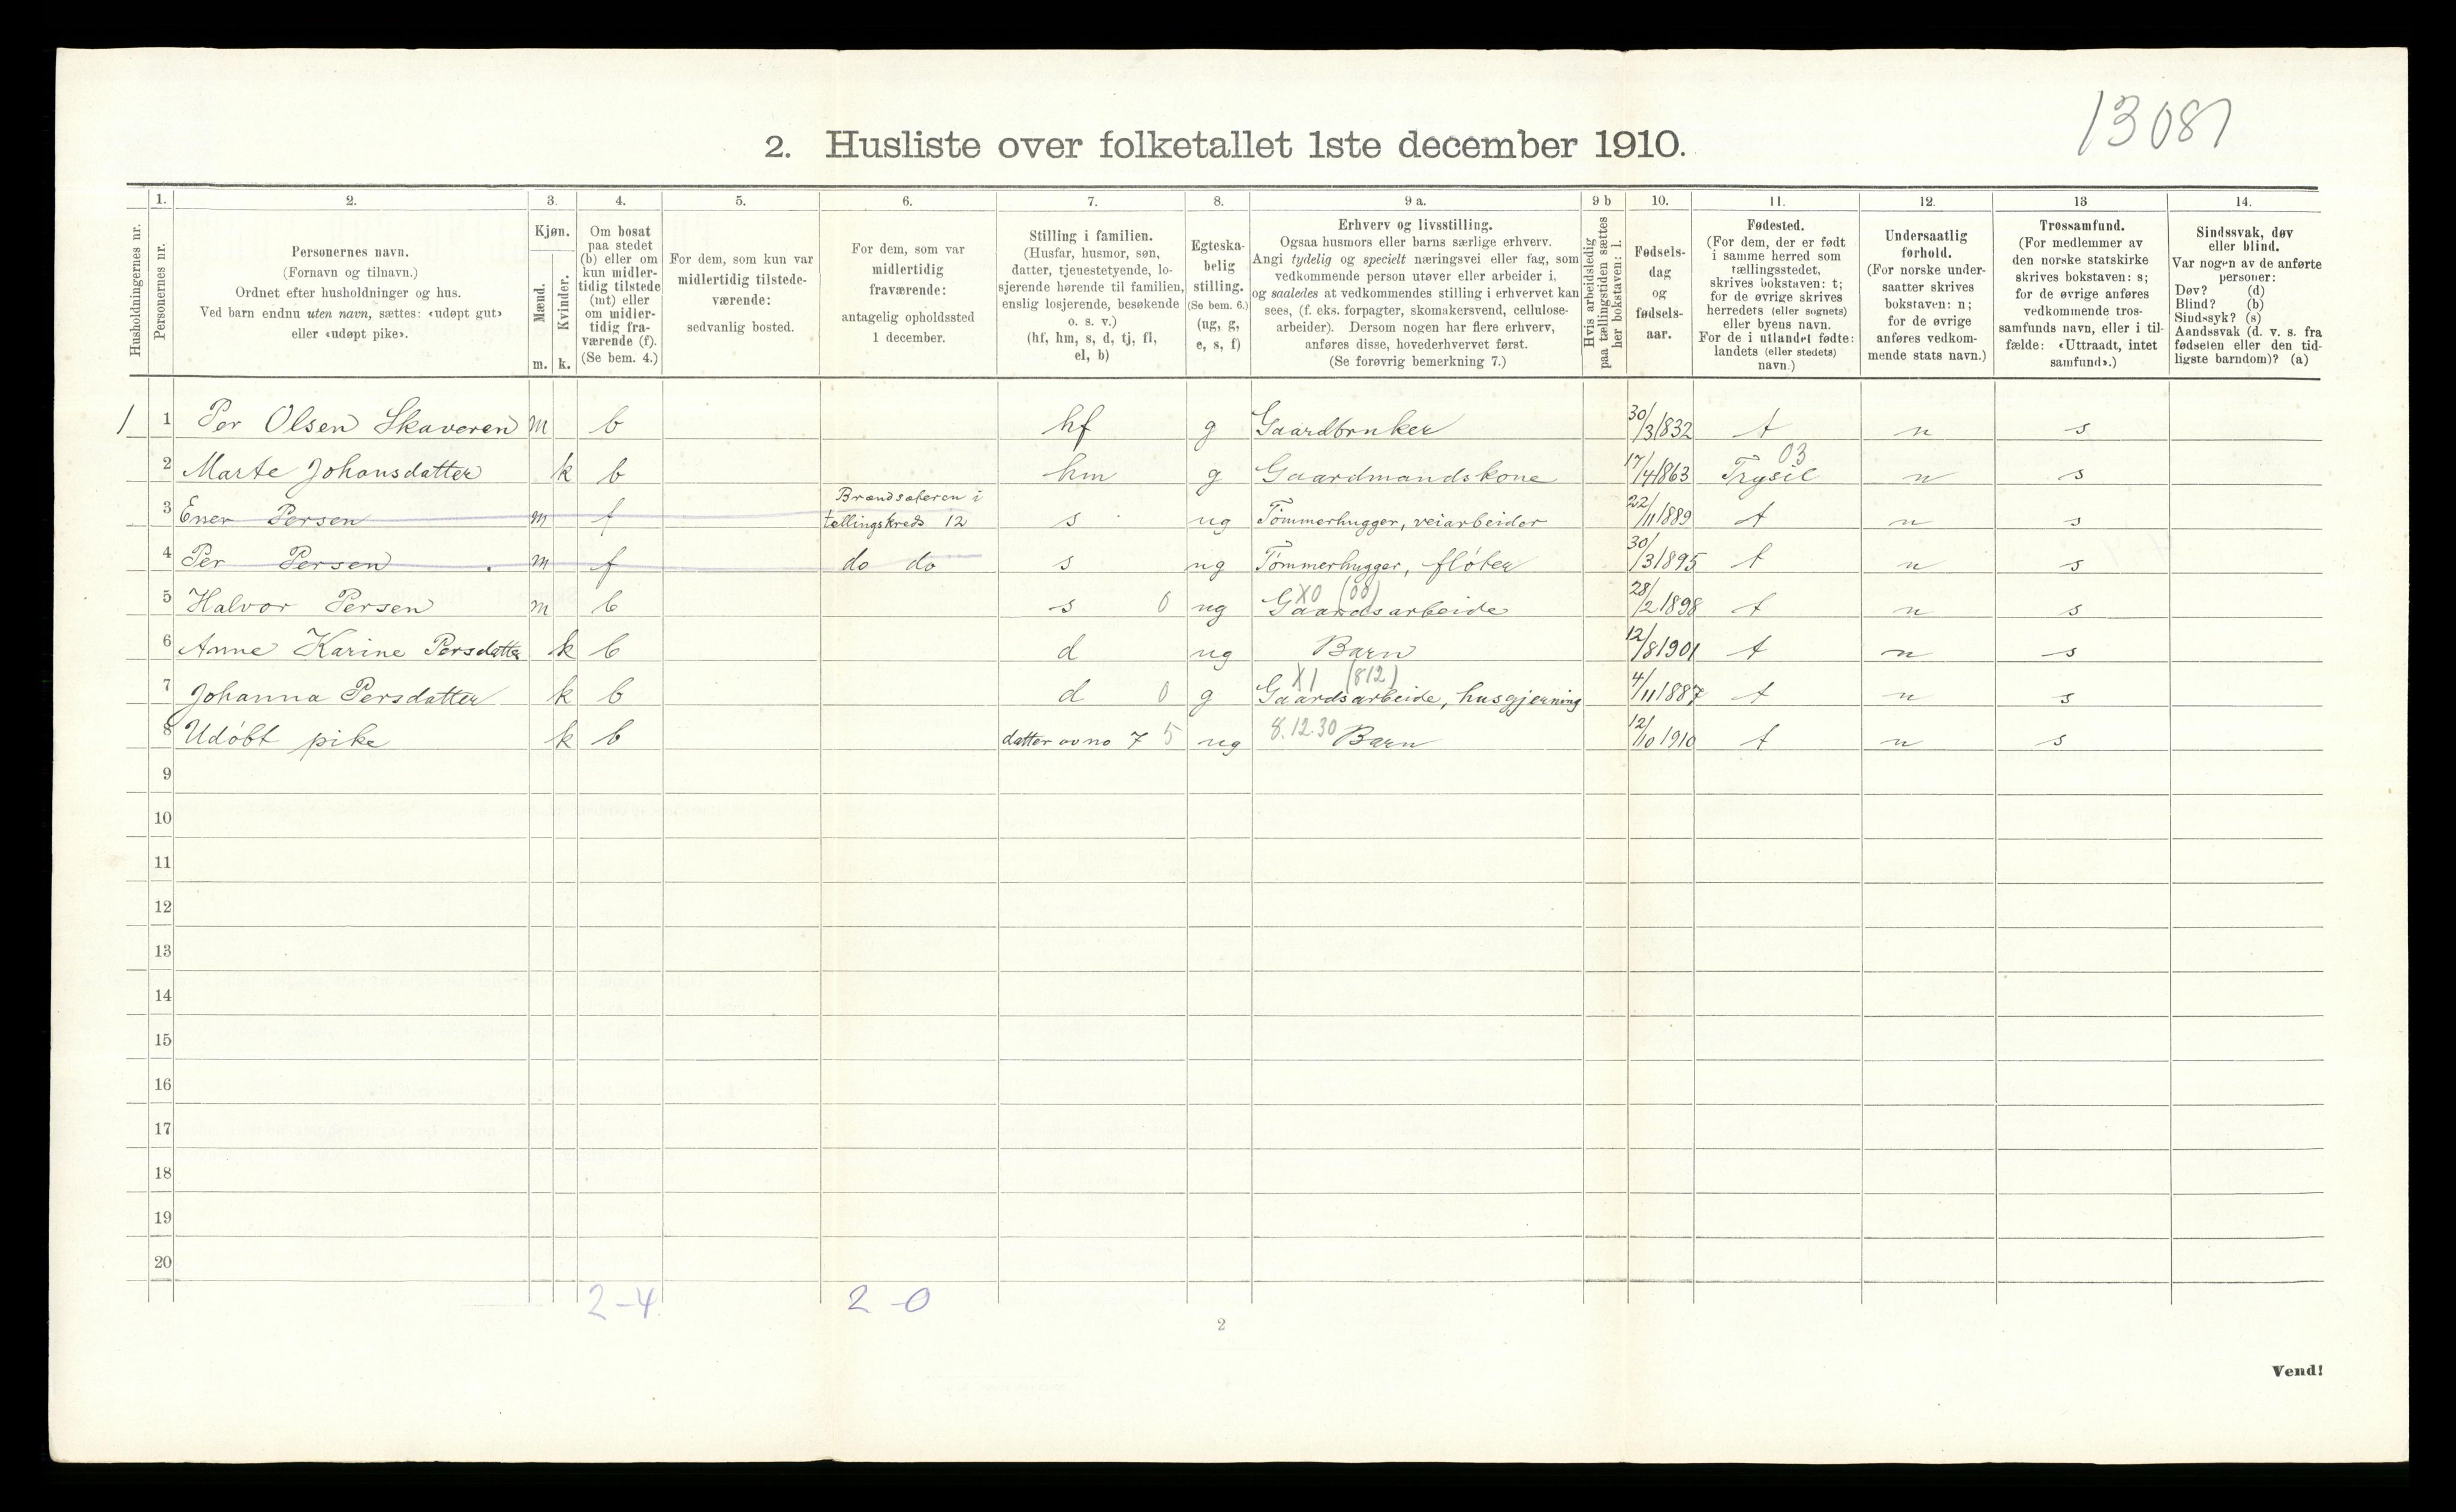 13081
2. Husliste over folketallet 1ste december 1910.
1. 2. 3. 4. 5. 6. 7. 8. 9 a. 9 b 10. 11. 12. 13 14.
Husholdningernes nr.
Personernes nr.
Personernes navn.
(Fornavn og tilnavn.)
Ordnet efter husholdninger og hus.
Ved barn endnu uten navn, sættes: «udøpt gut»
eller «udøpt pike».
Kjøn.
Mænd.
Kvinder.
m. k.
Om bosat
paa stedet
(b) eller om
kun midler-
tidig tilstede
(mt) eller
om midler-
tidig fra-
værende (f).
(Se bem. 4.)
For dem, som kun var
midlertidig tilstede-
værende:
sedvanlig bosted.
For dem, som var
midlertidig
fraværende:
antagelig opholdssted
1 december.
Stilling i familien.
(Husfar, husmor, søn,
datter, tjenestetyende, lo-
sjerende hørende til familien,
enslig losjerende, besøkende
o. s. v.)
(hf, hm, s, d, tj, fl,
el, b)
Egteska-
belig
stilling.
(Se bem. 6.)
(ug, g,
e, s, f)
Erhverv og livsstilling.
Ogsaa husmors eller barns særlige erhverv.
Angi tydelig og specielt næringsvei eller fag, som
vedkommende person utøver eller arbeider i,
og saaledes at vedkommendes stilling i erhvervet kan
sees, (f. eks. forpagter, skomakersvend, cellulose-
arbeider). Dersom nogen har flere erhverv,
anføres disse, hovederhvervet først.
(Se forøvrig bemerkning 7.)
Hvis arbeidsledig
paa tællingstiden sættes
her bokstaven: l.
Fødsels-
dag
og
fødsels-
aar.
Fødested.
(For dem, der er født
i samme herred som
tællingsstedet,
skrives bokstaven: t;
for de øvrige skrives
herredets (eller sognets)
eller byens navn.
For de i utlandet fødte:
landets (eller stedets)
navn.)
Undersaatlig
forhold.
(For norske under-
saatter skrives
bokstaven: n;
for de øvrige
anføres vedkom-
mende stats navn.)
Trossamfund.
(For medlemmer av
den norske statskirke
skrives bokstaven: s;
for de øvrige anføres
vedkommende tros-
samfunds navn, eller i til-
fælde: «Uttraadt, intet
samfund».)
Sindssvak, døv
eller blind.
Var nogen av de anførte
personer:
Døv? (d)
Blind? (b)
Sindssyk? (s)
Aandssvak (d. v. s. fra
fødselen eller den tid-
ligste barndom)? (a)
1 1 Per Olsen Skaveren m b hf g Gaardbruker 30/3 1832 t n s
03
2 Marte Johansdatter k b hm g Gaardmandskone 17/4 1863 Trysil n s
Brændsæteren i
3 Ener Persen m f tællingskreds 12 s ug Tømmerhugger, veiarbeider 22/11 1889 t n s
4 Per Persen m f do do s ug Tømmerhugger, fløter 30/3 1895 t n s
X0 (08)
5 Halvor Persen m b s 0 ug Gaardsarbeide 28/2 1898 t n s
6 Anne Karine Persdatter k b d ug Barn 12/8 1901 t n s
X1 (812)
7 Johanna Persdatter k b d 0 g Gaardsarbeide, husgjerning 4/11 1887 t n s
8 Udøbt pike k b datter av no 7 5 ug 8.12.30 Barn 12/10 1910 t n s
9
10
11
12
13
14
15
16
17
18
19
20
2-4 2-0
2
Vend!